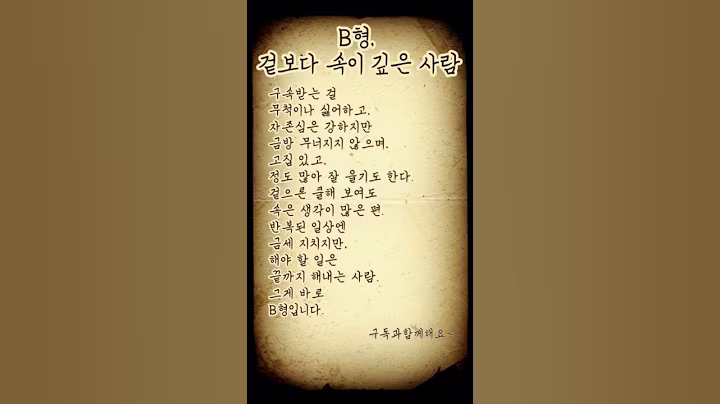 B형,
겉보다 속이 깊은 사람
구속받는 걸
무척이나 싫어하고,
자존심은 강하지만
금방 무너지지 않으며,
고집 있고,
정도 많아 잘 울기도 한다.
겉으론 쿨해 보여도
속은 생각이 많은 편.
반복된 일상엔
금세 지치지만,
해야 할 일은
끝까지 해내는 사람.
그게 바로
B형입니다.
구독과함께해요~